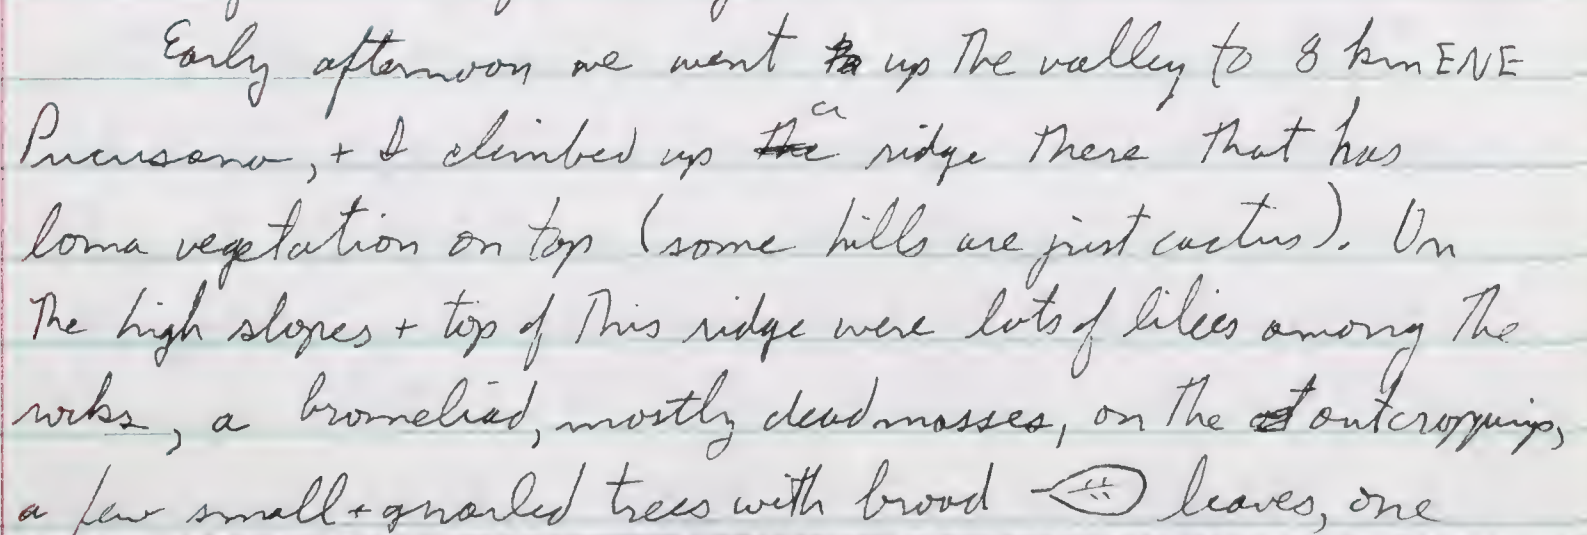 Early afternoon we went up the valley to 8 km ENE
Pucusana, + I climbed up a ridge there that has
loma vegetation on top (some hills are just cactus). On
the high slopes + top of this ridge were lots of lilies among the
rocks, a bromeliad, mostly dead masses, on the outcroppings,
a few small + gnarled trees with broad leaves, one